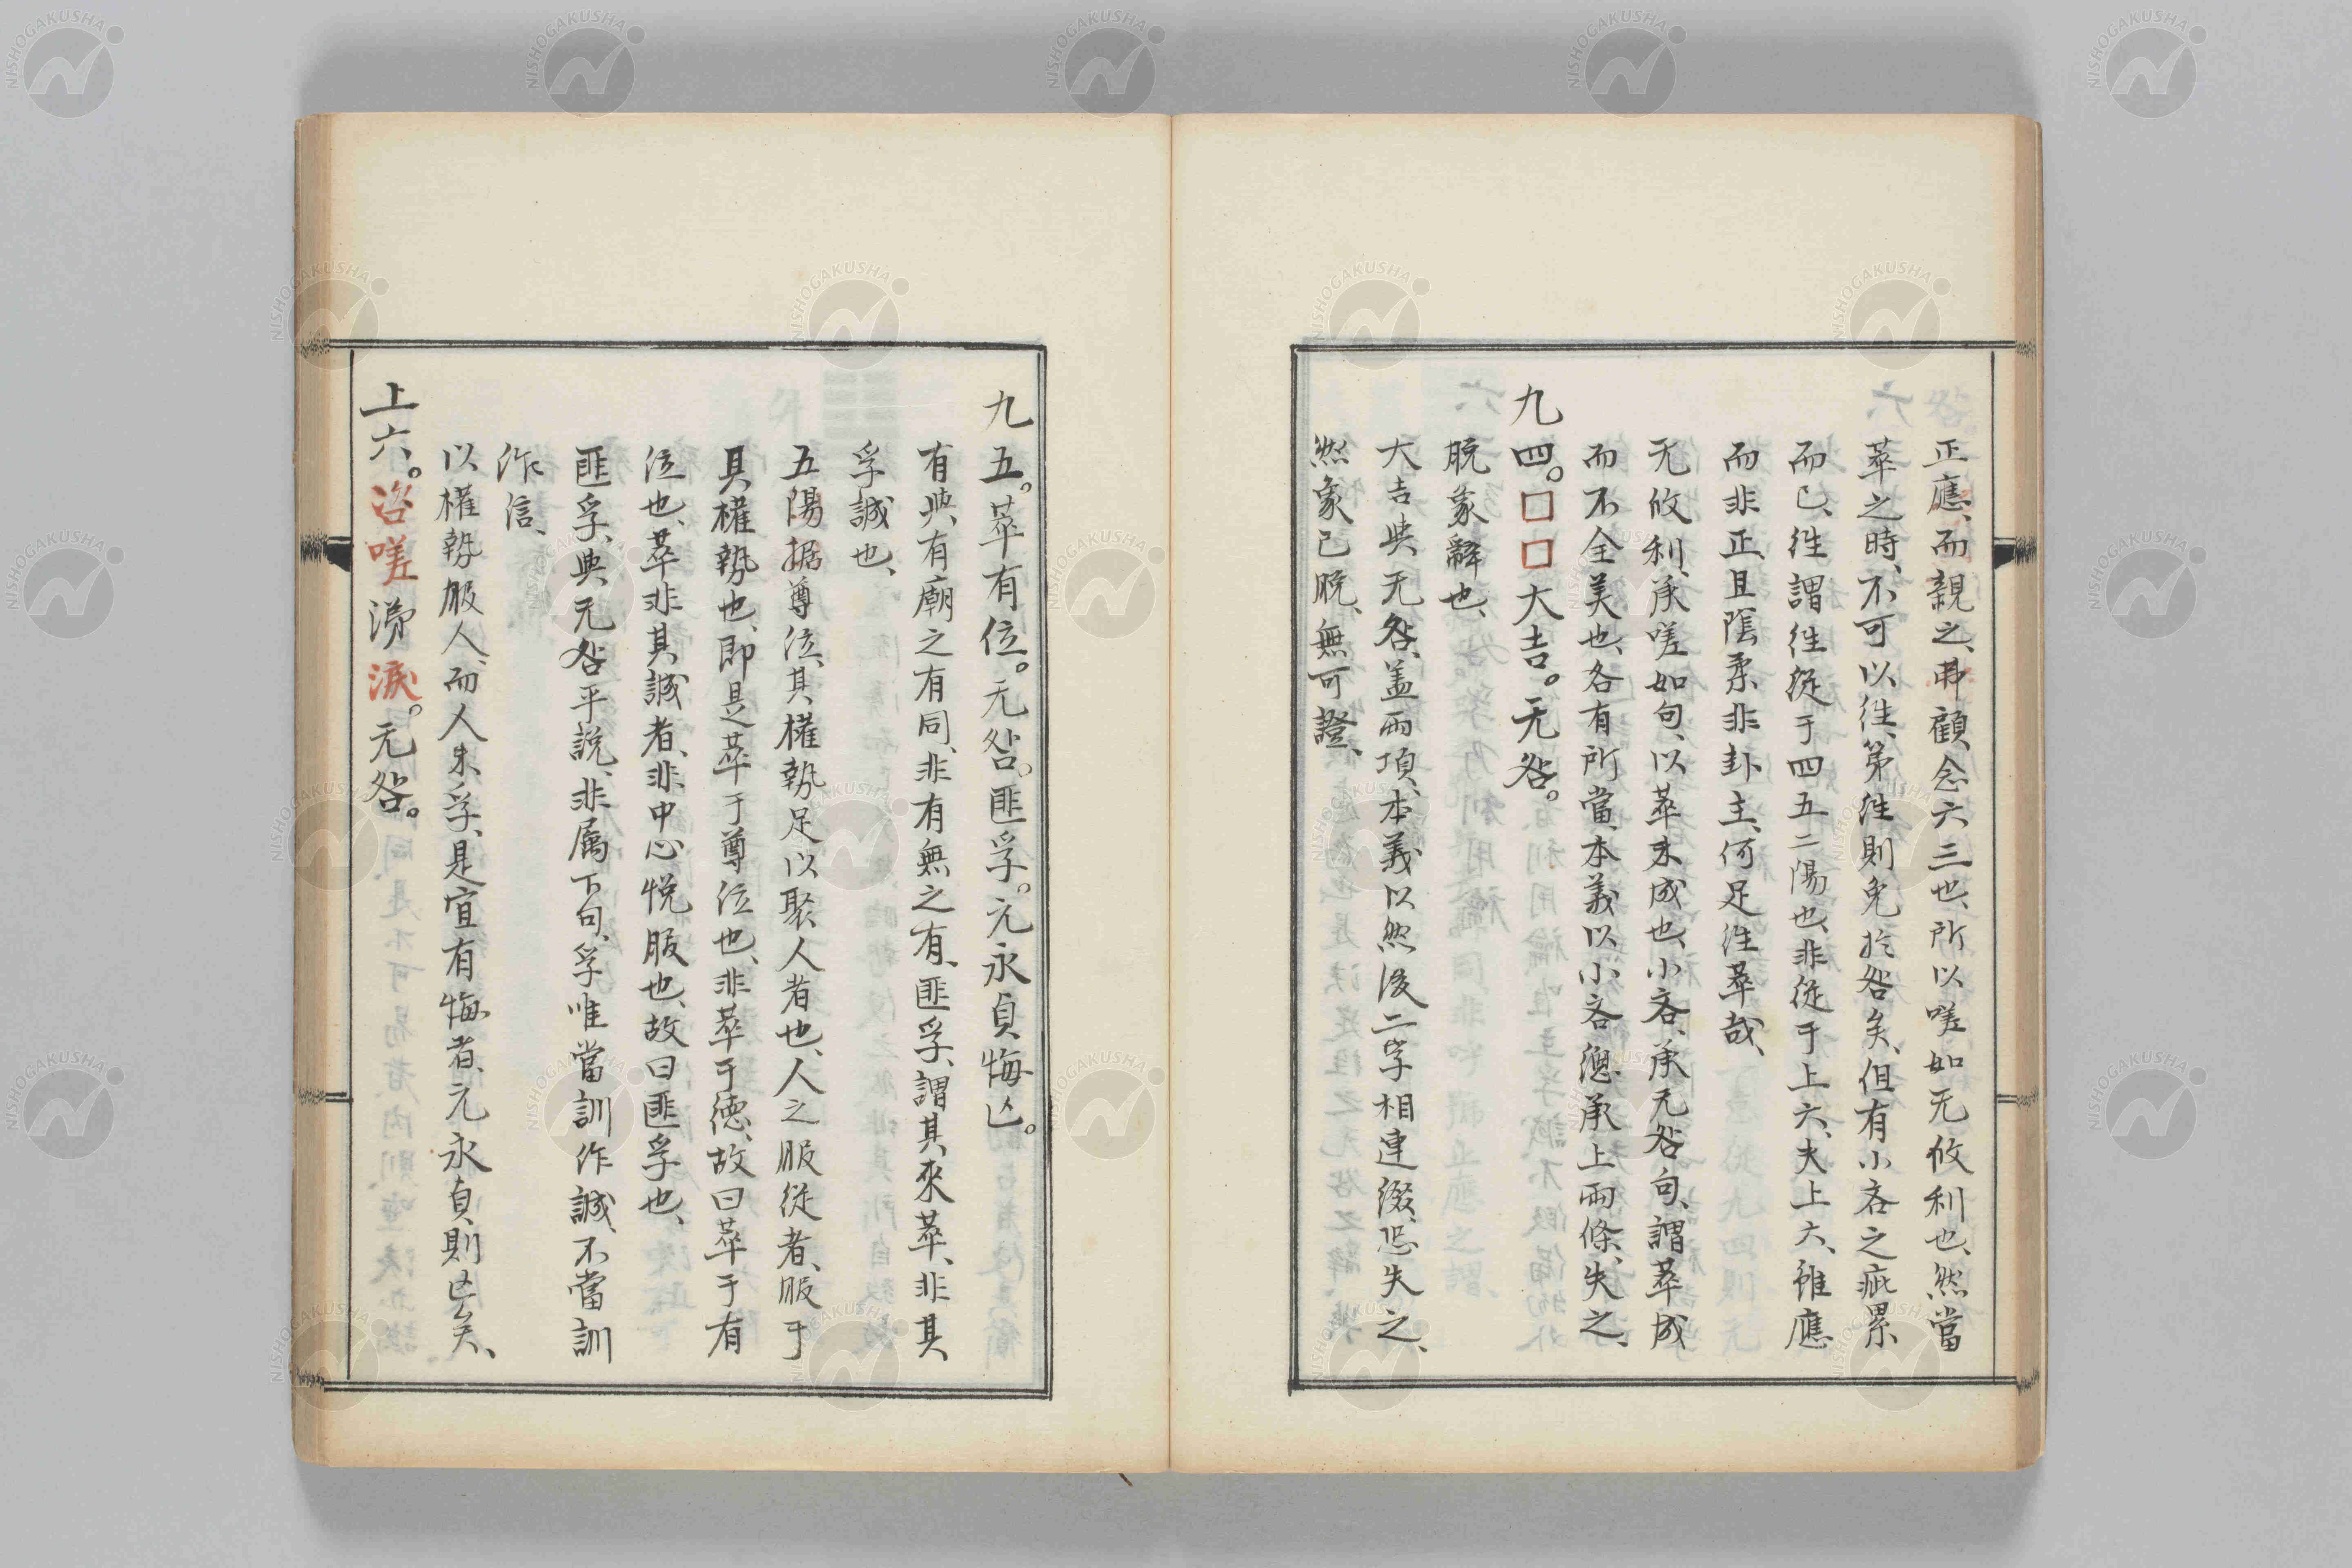 正應、而親之、弗顧念六三也、所以嗟如无攸利也、然當
萃之時、不可以往、第往則免於咎矣、但有小吝之疵累
而已、往謂往從于四五二陽也、非從于上六、夫上六、雖應
而非正、且陰柔非卦主、何足往萃哉、
无攸利、承嗟如句、以萃未成也、小吝、承无咎句、謂萃成
而不全美也、各有所當、本義以小吝總承上兩條、失之、
九四。□□大吉。无咎。
脫象辭也、
大吉與无咎、蓋兩項、本義以然後二字相連綴、恐失之、
然象已脫、無可證、
九五。萃有位。无咎。匪孚。元永貞悔亡。
有與有廟之有同、非有無之有、匪孚、謂其來萃、非其
孚誠也、
五陽据尊位、其權勢足以聚人者也、人之服從者、服于
其權勢也、即是萃于尊位也、非萃于德、故曰萃于有
位也、萃非其誠者、非中心悅服也、故曰匪孚也、
匪孚、與无咎平說、非属下句、孚唯當訓作誠、不當訓
作信、
以權勢服人、而人未孚、是宜有悔者、元永貞則亡矣、
上六。咨嗟涕淚。无咎。
NISHOGAKUSHA